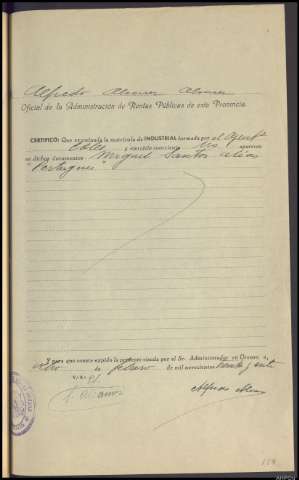 Alfredo Alvarez Alvarez
Oficial de la Administración de Rentas Públicas de esta Provincia.
CERTIFICO: Que examinada la matrícula de INDUSTRIAL formada por el
y ejercicio corriente no aparece
en dichos documentos Miguel Santos alias
"Portugues".
Y para que conste expido la presente visada por el Sr. Administrador en Orense, a,
ocho de febrero de mil novecientos treinta y siete
V.º B.º
Alfredo